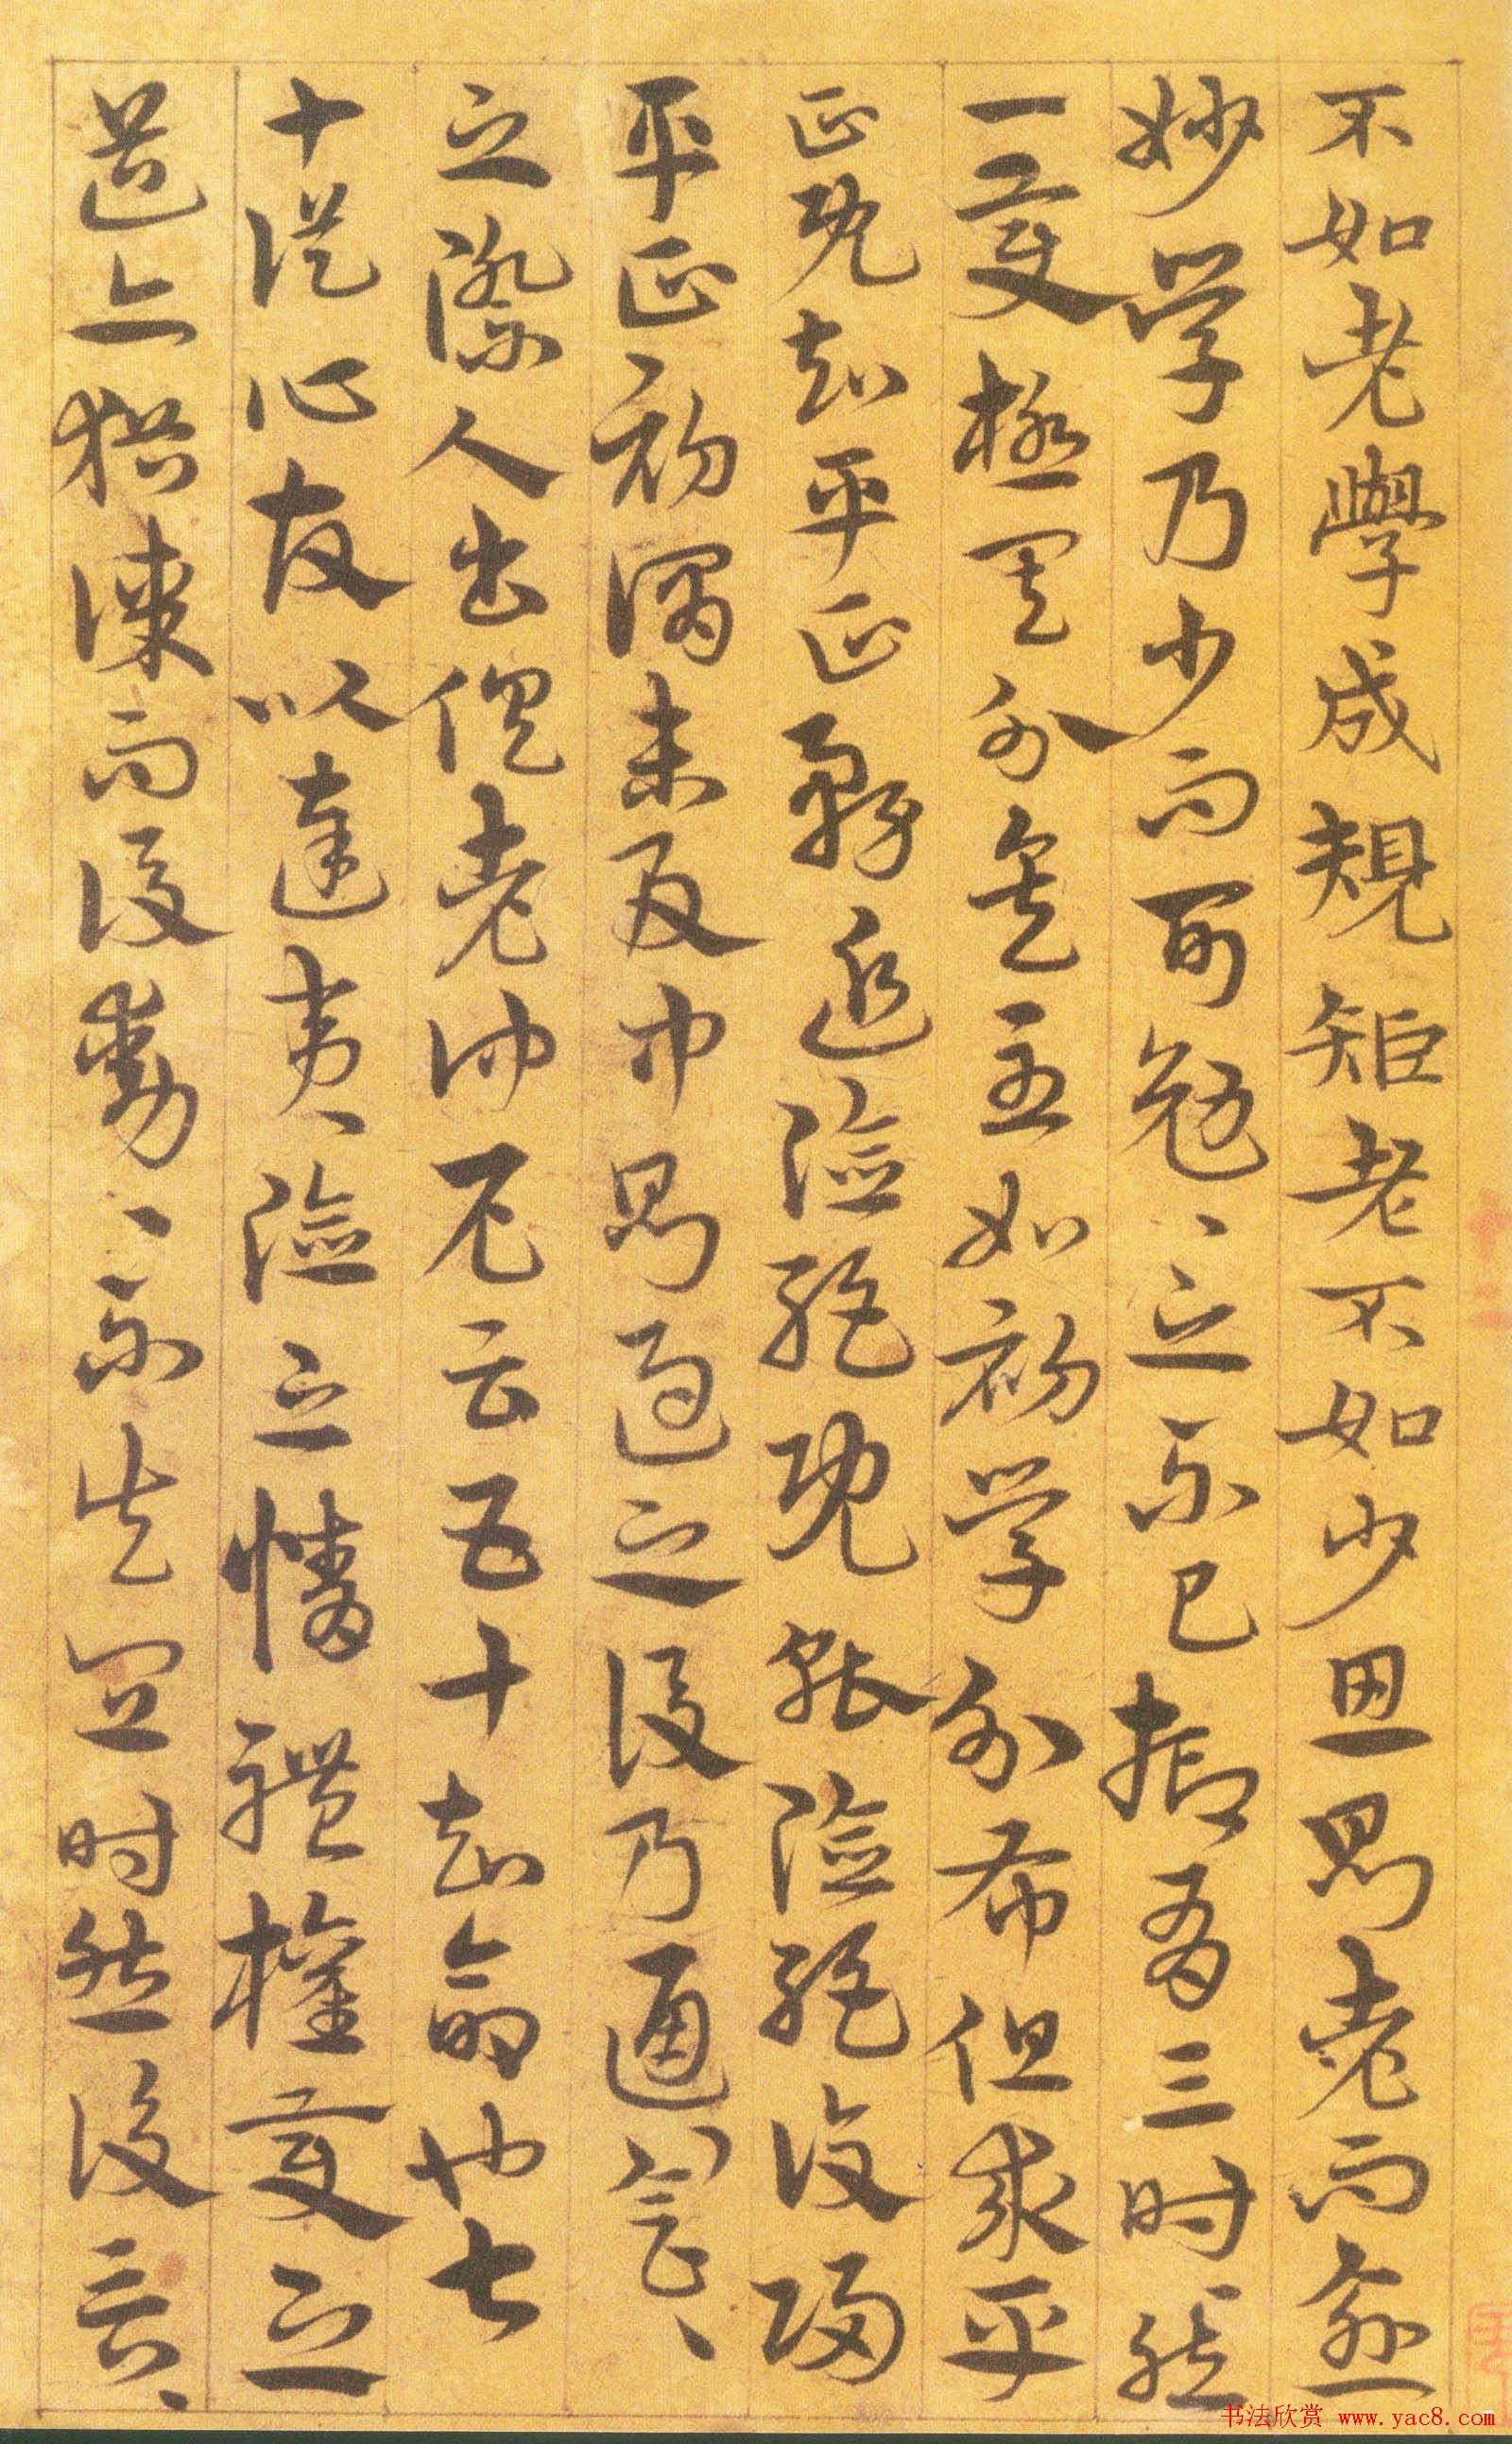 不如老學成規矩老不如少思則老而愈
妙學乃少而可勉、之不已抑有三時然
一變極其分矣至如初學分布但求平
正既知平正務追險絕既能險絕復歸
平正初謂未及中則過之後乃通會、、
之際人書俱老仲尼云五十知命也七
十從心故以達夷險之情體權變之
道亦猶謀而後動、不失宜時然後言、
书法欣赏 www.yac8.com